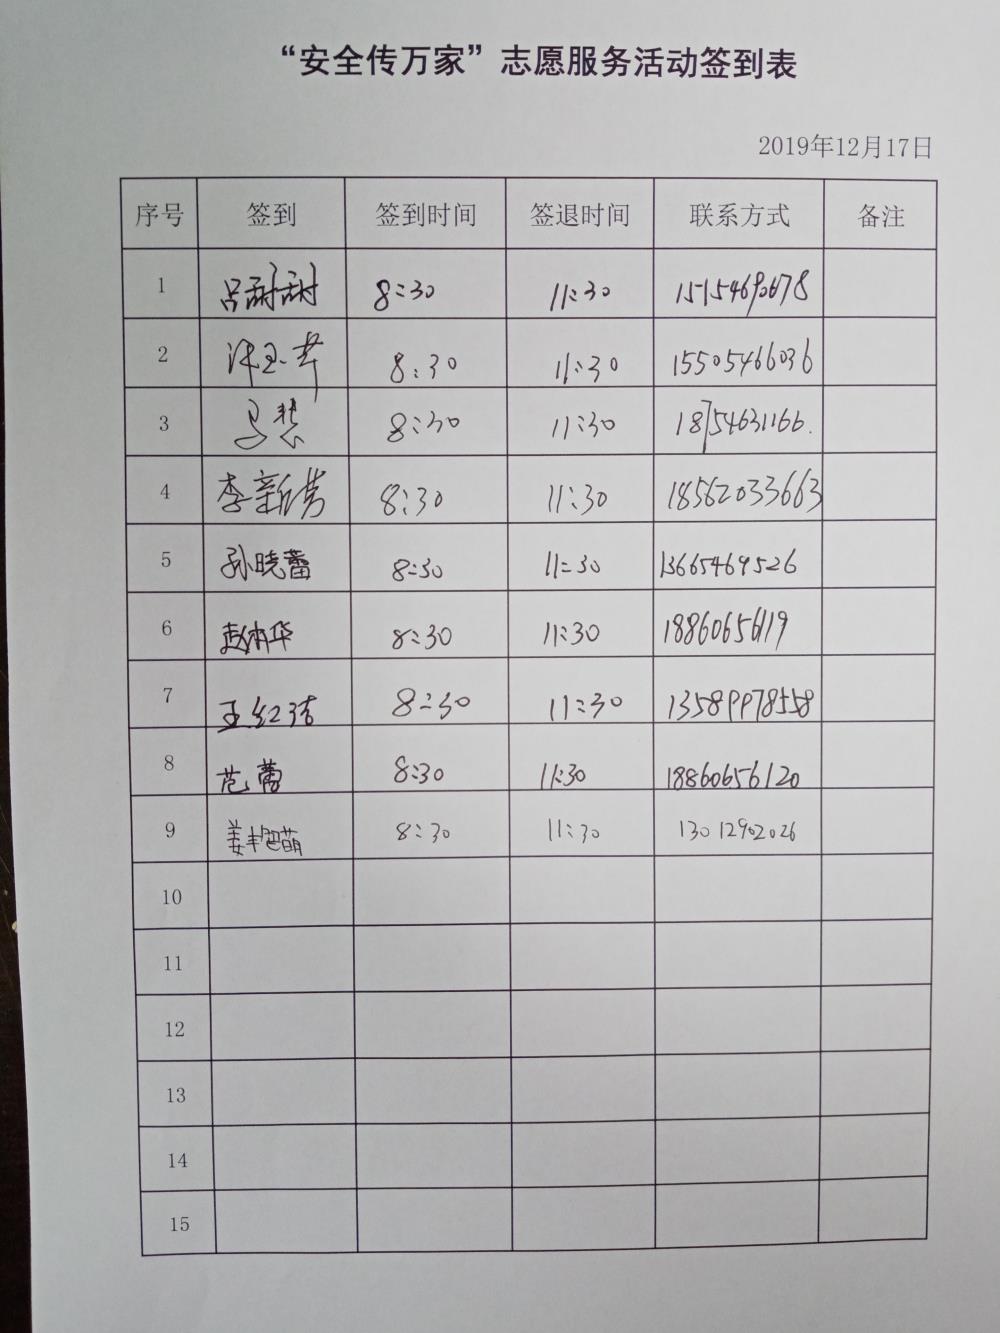 “安全传万家”志愿服务活动签到表
2019年12月17日
序号 签到 签到时间 签退时间 联系方式 备注
1 吕甜甜 8:30 11:30 15154690678
2 8:30 11:30 15505466036
3 8:30 11:30 18754631166.
4 李新芳 8:30 11:30 18562033663
5 孙晓蕾 8:30 11:30 13665469526
6 赵 华 8:30 11:30 18860656119
7 王红洁 8:30 11:30 13589978558
8 范蕾 8:30 11:30 18860656120
9 姜 萌 8:30 11:30 13012902026
10
11
12
13
14
15